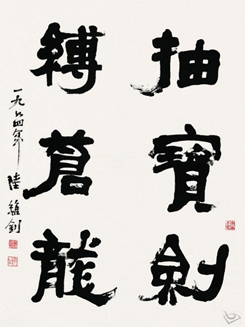 抽寶劍
縛蒼龍
一九六四年 陸維釗